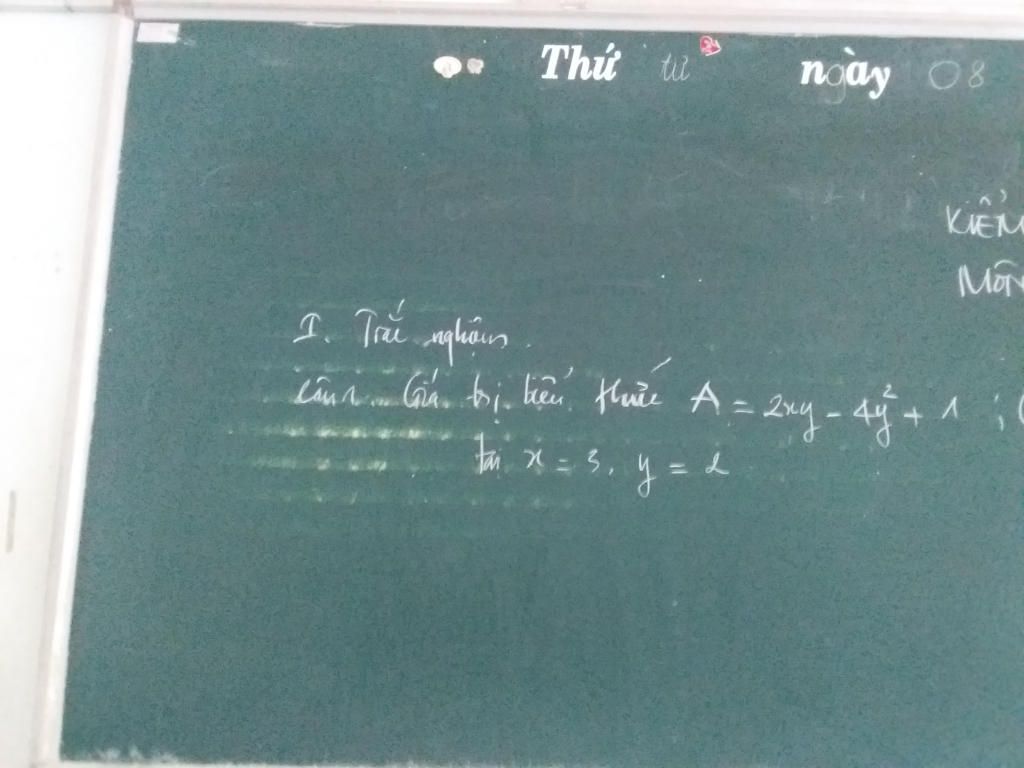 Thứ tư ngày 08
KIỂM
Môn
I. Trắc nghiệm.
Câu 1. Giá trị biểu thức A = 2xy - 4y² + 1 ; (
tại x = 3, y = 2